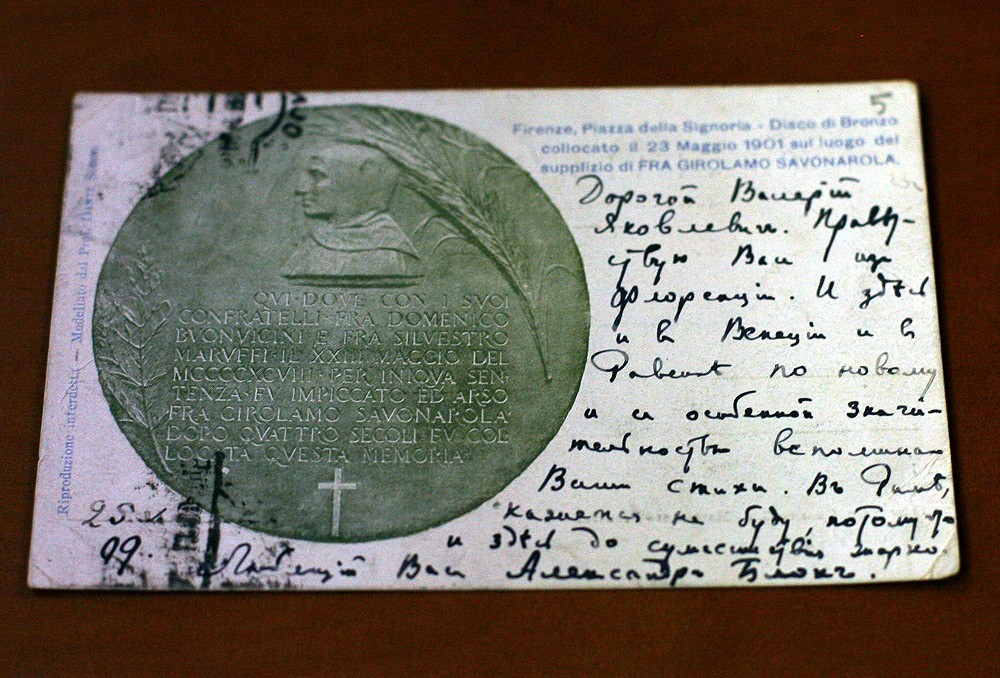 5
Firenze, Piazza della Signoria - Disco di Bronzo
collocato il 23 Maggio 1901 sul luogo del
supplizio di FRA GIROLAMO SAVONAROLA.
Riproduzione interdetta — Modellato dal Prof. DANTE
QVI·DOVE CON I SVOI
CONFRATELLI·FRA DOMENICO
BVONVICINI E FRA SILVESTRO
MARVFFI·IL XXIII MAGGIO DEL
MCCCCXCVIII·PER INIQVA SEN
TENZA·FV IMPICCATO ED ARSO
FRA GIROLAMO SAVONAROLA
DOPO QVATTRO SECOLI FV COL
LOCATA QVESTA MEMORIA
Дорогой Валерій
Яковлевич. Привѣт-
ствую Вас из
Флоренціи. И здѣсь
и въ Венеціи и въ
Равеннѣ по новому
и съ особенной значи-
тельностью вспоминаю
Ваши стихи. Въ Римѣ,
кажется не буду, потому что
и здѣсь до сумасшествія жарко.
Любящій Васъ Александръ Блокъ.